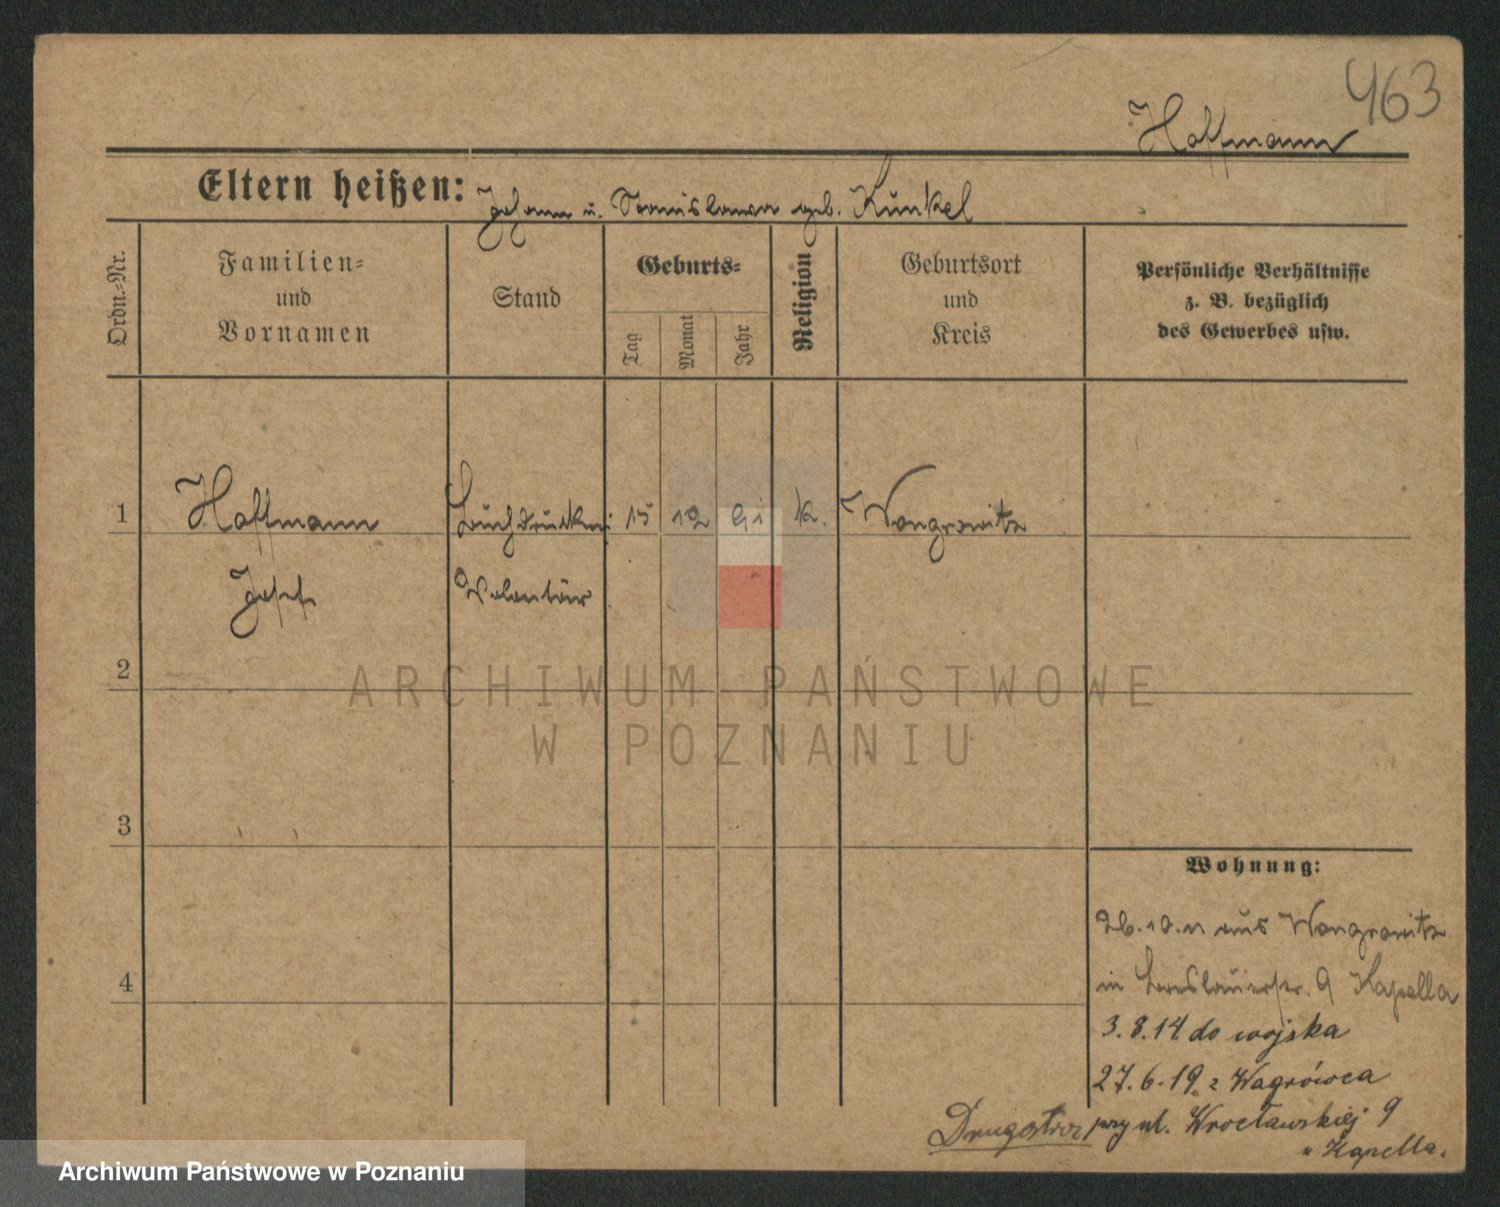 463
Hoffmann
Eltern heißen: Johann u. Stanislawa geb. Kunkel
Ordn.-Nr.
Familien-
und
Vornamen
Stand
Geburts-
Tag
Monat
Jahr
Religion
Geburtsort
und
Kreis
Persönliche Verhältnisse
z. B. bezüglich
des Gewerbes usw.
1 Hoffmann 15 12 91 k. Wongrowitz
Josef Volontär
2
ARCHIWUM PAŃSTWOWE
W POZNANIU
3
Wohnung:
26.10.11 aus Wongrowitz
4
in Breslauerstr. 9 Kapella
3.8.14 do wojska
27.6.19 z Wągrówca
przy ul. Wrocławskiej 9
u Kapella.
Archiwum Państwowe w Poznaniu